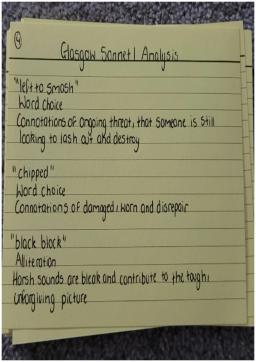 4
Glasgow Sonnet 1 Analysis
"left to smash"
Word choice
Connotations of ongoing threat, that someone is still
looking to lash out and destroy
"chipped"
Word choice
Connotations of damaged, worn and disrepair
"black block"
Alliteration
Harsh sounds are bleak and contribute to the tough,
unforgiving picture